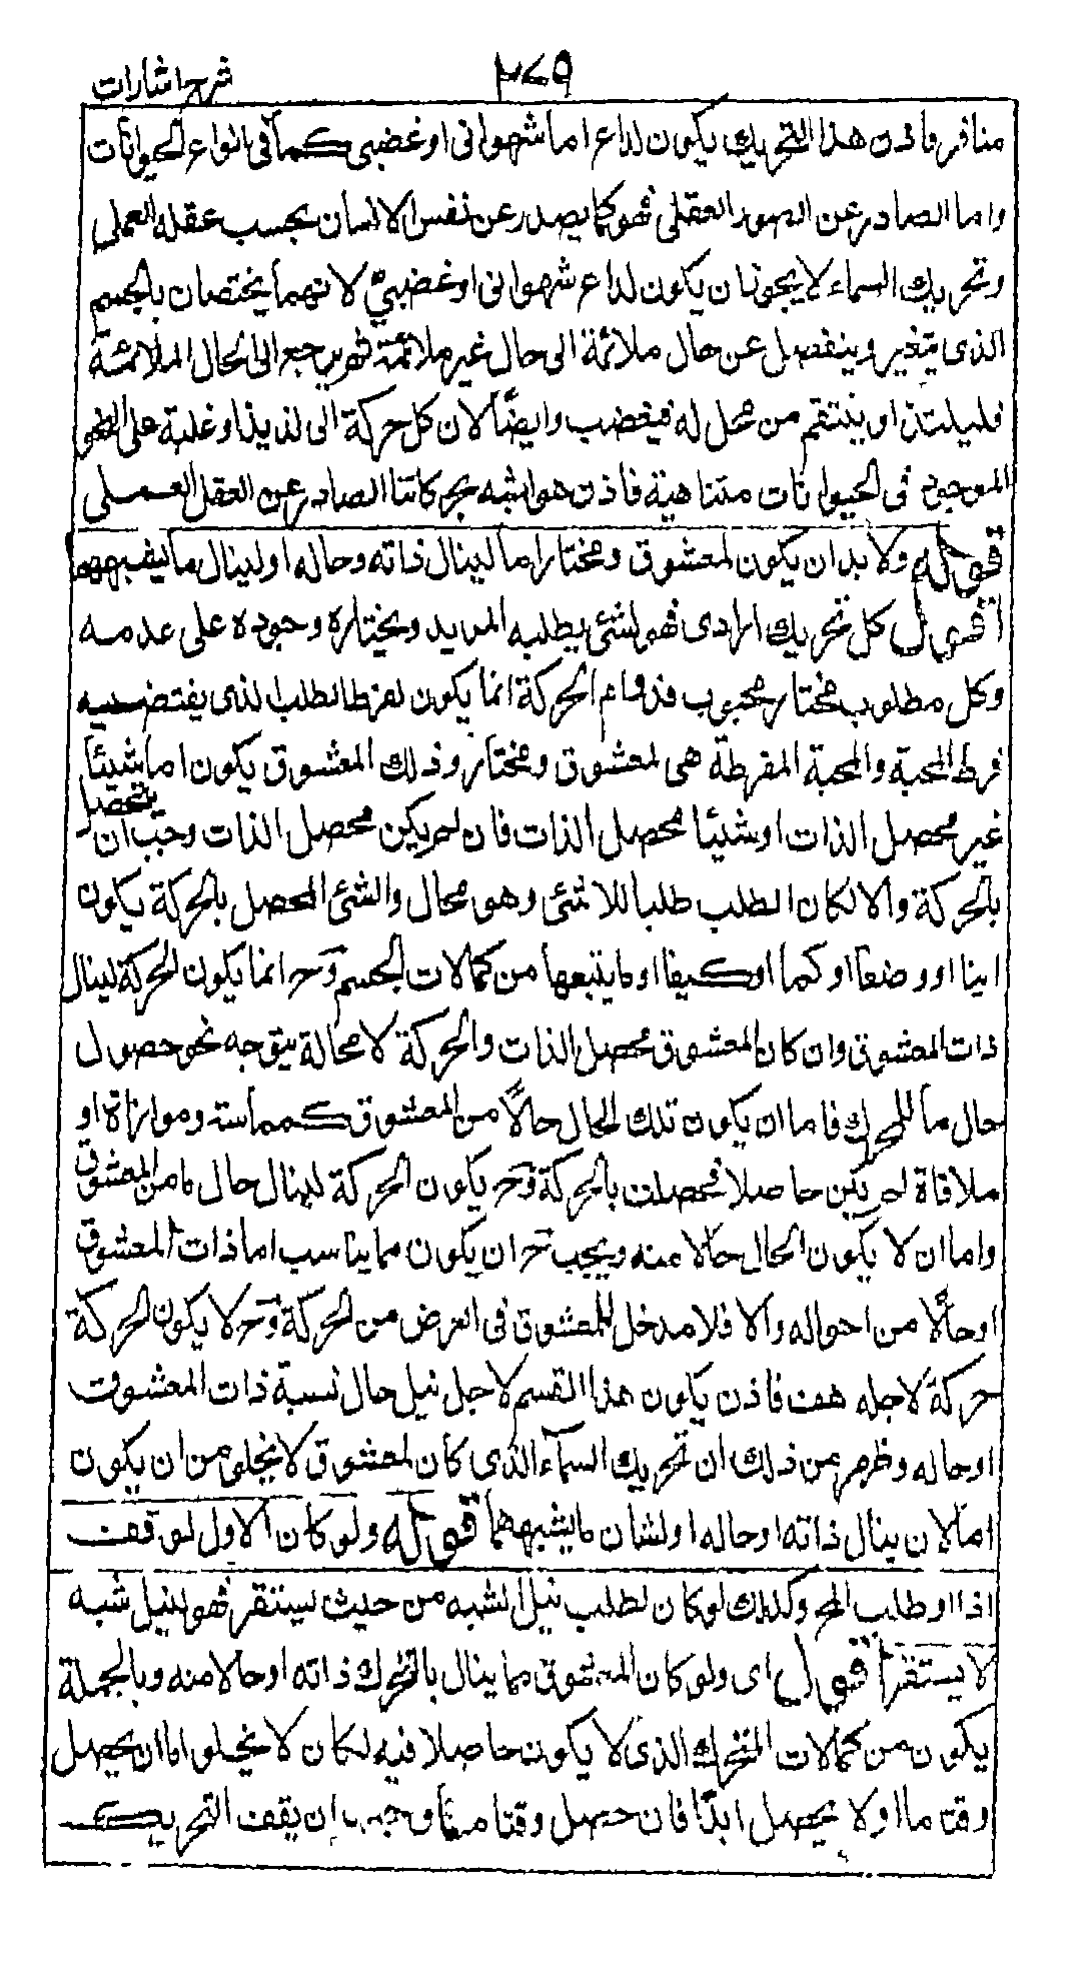 شرح اشارات ٢٧٩
منافر فاذن هذا التحريك يكون لداع اما شهوانى او غضبى كما فى انواع الحيوانات
واما الصادر عن التصور العقلى فهو كما يصدر عن نفس الانسان بحسب عقله العملى
وتحريك السماء لا يجوز ان يكون لداع شهوانى او غضبى لانهما يختصان بالجسم
الذى يتغير وينفصل عن حال ملائمة الى حال غير ملائمة فهو يرجع الى الحال الملائمة
فليلتذ او ينتقم من مخيل له فيغضب وايضًا لان كل حركة الى لذيذ او غلبة على النحو
الموجود فى الحيوانات متناهية فاذن هو اشبه بحركاتنا الصادر عن العقل العملى
قوله ولا بد ان يكون لمعشوق ومختار اما لينال ذاته وحاله او لينال ما يشبههما
اقول كل تحريك ارادى فهو لشئ يطلبه المريد ويختاره وجوده على عدمه
وكل مطلوب مختار محبوب فدوام الحركة انما يكون لفرط الطلب الذى يقتضيه
فرط المحبة والمحبة المفرطة هى لمعشوق ومختار وذلك المعشوق يكون اما شيئًا
غير محصل الذات او شيئا محصل الذات فان لم يكن محصل الذات وجب ان يتحصل
بالحركة والا لكان الطلب طلبا للاشئ وهو محال والشئ المحصل بالحركة يكون
اينا او وضعا او كما او كيفا او ما يتبعها من كمالات الجسم وح انما يكون الحركة لينال
ذات المعشوق وان كان المعشوق محصل الذات والحركة لا محالة يتوجه نحو حصول
حال ما للمحرك فاما ان يكون تلك الحال حالًا من المعشوق كمماسة وموازاة او
ملاقاة لم يكن حاصلا فحصلت بالحركة وح يكون الحركة لينال حال ما من المعشوق
واما ان لا يكون الحال حالا منه ويجب ح ان يكون مما يناسب اما ذات المعشوق
او حالًا من احواله والا فلا مدخل للمعشوق فى الغرض من الحركة وح لا يكون الحركة
حركة لاجله هف فاذن يكون هذا القسم لاجل نيل حال نسبة ذات المعشوق
او حاله وظهر من ذلك ان تحريك السماء الذى كان لمعشوق لا يخلو من ان يكون
اما لان ينال ذاته او حاله او لشان ما يشبههما قوله ولو كان الاول لوقفت
اذا او طلب المح وكذلك لو كان لطلب نيل الشبه من حيث يستقر فهو لنيل شبه
لا يستقر اقول اى ولو كان المعشوق مما ينال بالتحرك ذاته او حالا منه وبالجملة
يكون من كمالات المتحرك الذى لا يكون حاصلا فيه لكان لا يخلو اما ان يحصل
وقتا ما او لا يحصل ابدًا فان حصل وقتا ما وجب ان يقف التحريك